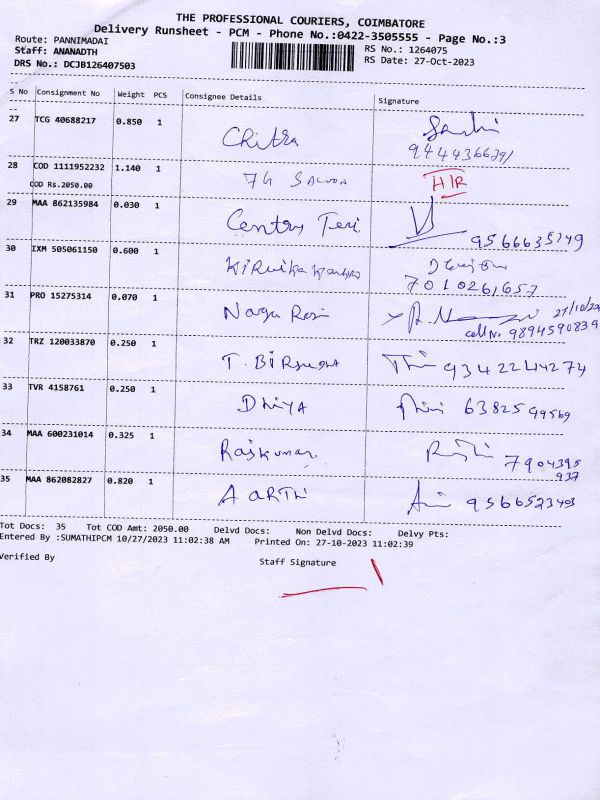 THE PROFESSIONAL COURIERS, COIMBATORE
Delivery Runsheet - PCM - Phone No.:0422-3505555 - Page No.:3
Route: PANNIMADAI
Staff: ANANADTH
RS No.: 1264075
DRS No.: DCJB126407503
RS Date: 27-Oct-2023
S No Consignment No Weight PCS Consignee Details Signature
27 TCG 40688217 0.850 1 Chitra
28 COD 1111952232 1.140 1 H/R
COD Rs.2050.00
29 MAA 862135984 0.030 1 9566635749
30 IXM 505061150 0.600 1
7010261657
31 PRO 15275314 0.070 1 Naga 27/10/202
Cell No 9894590839
32 TRZ 120033870 0.250 1 T. 9342244274
33 TVR 4158761 0.250 1 DHIYA 6382599569
34 MAA 600231014 0.325 1 Rajkumar 7904395
937
35 MAA 862082827 0.820 1 AARTHI 9566523403
Tot Docs: 35 Tot COD Amt: 2050.00 Delvd Docs: Non Delvd Docs: Delvy Pts:
Entered By :SUMATHIPCM 10/27/2023 11:02:38 AM Printed On: 27-10-2023 11:02:39
Verified By Staff Signature